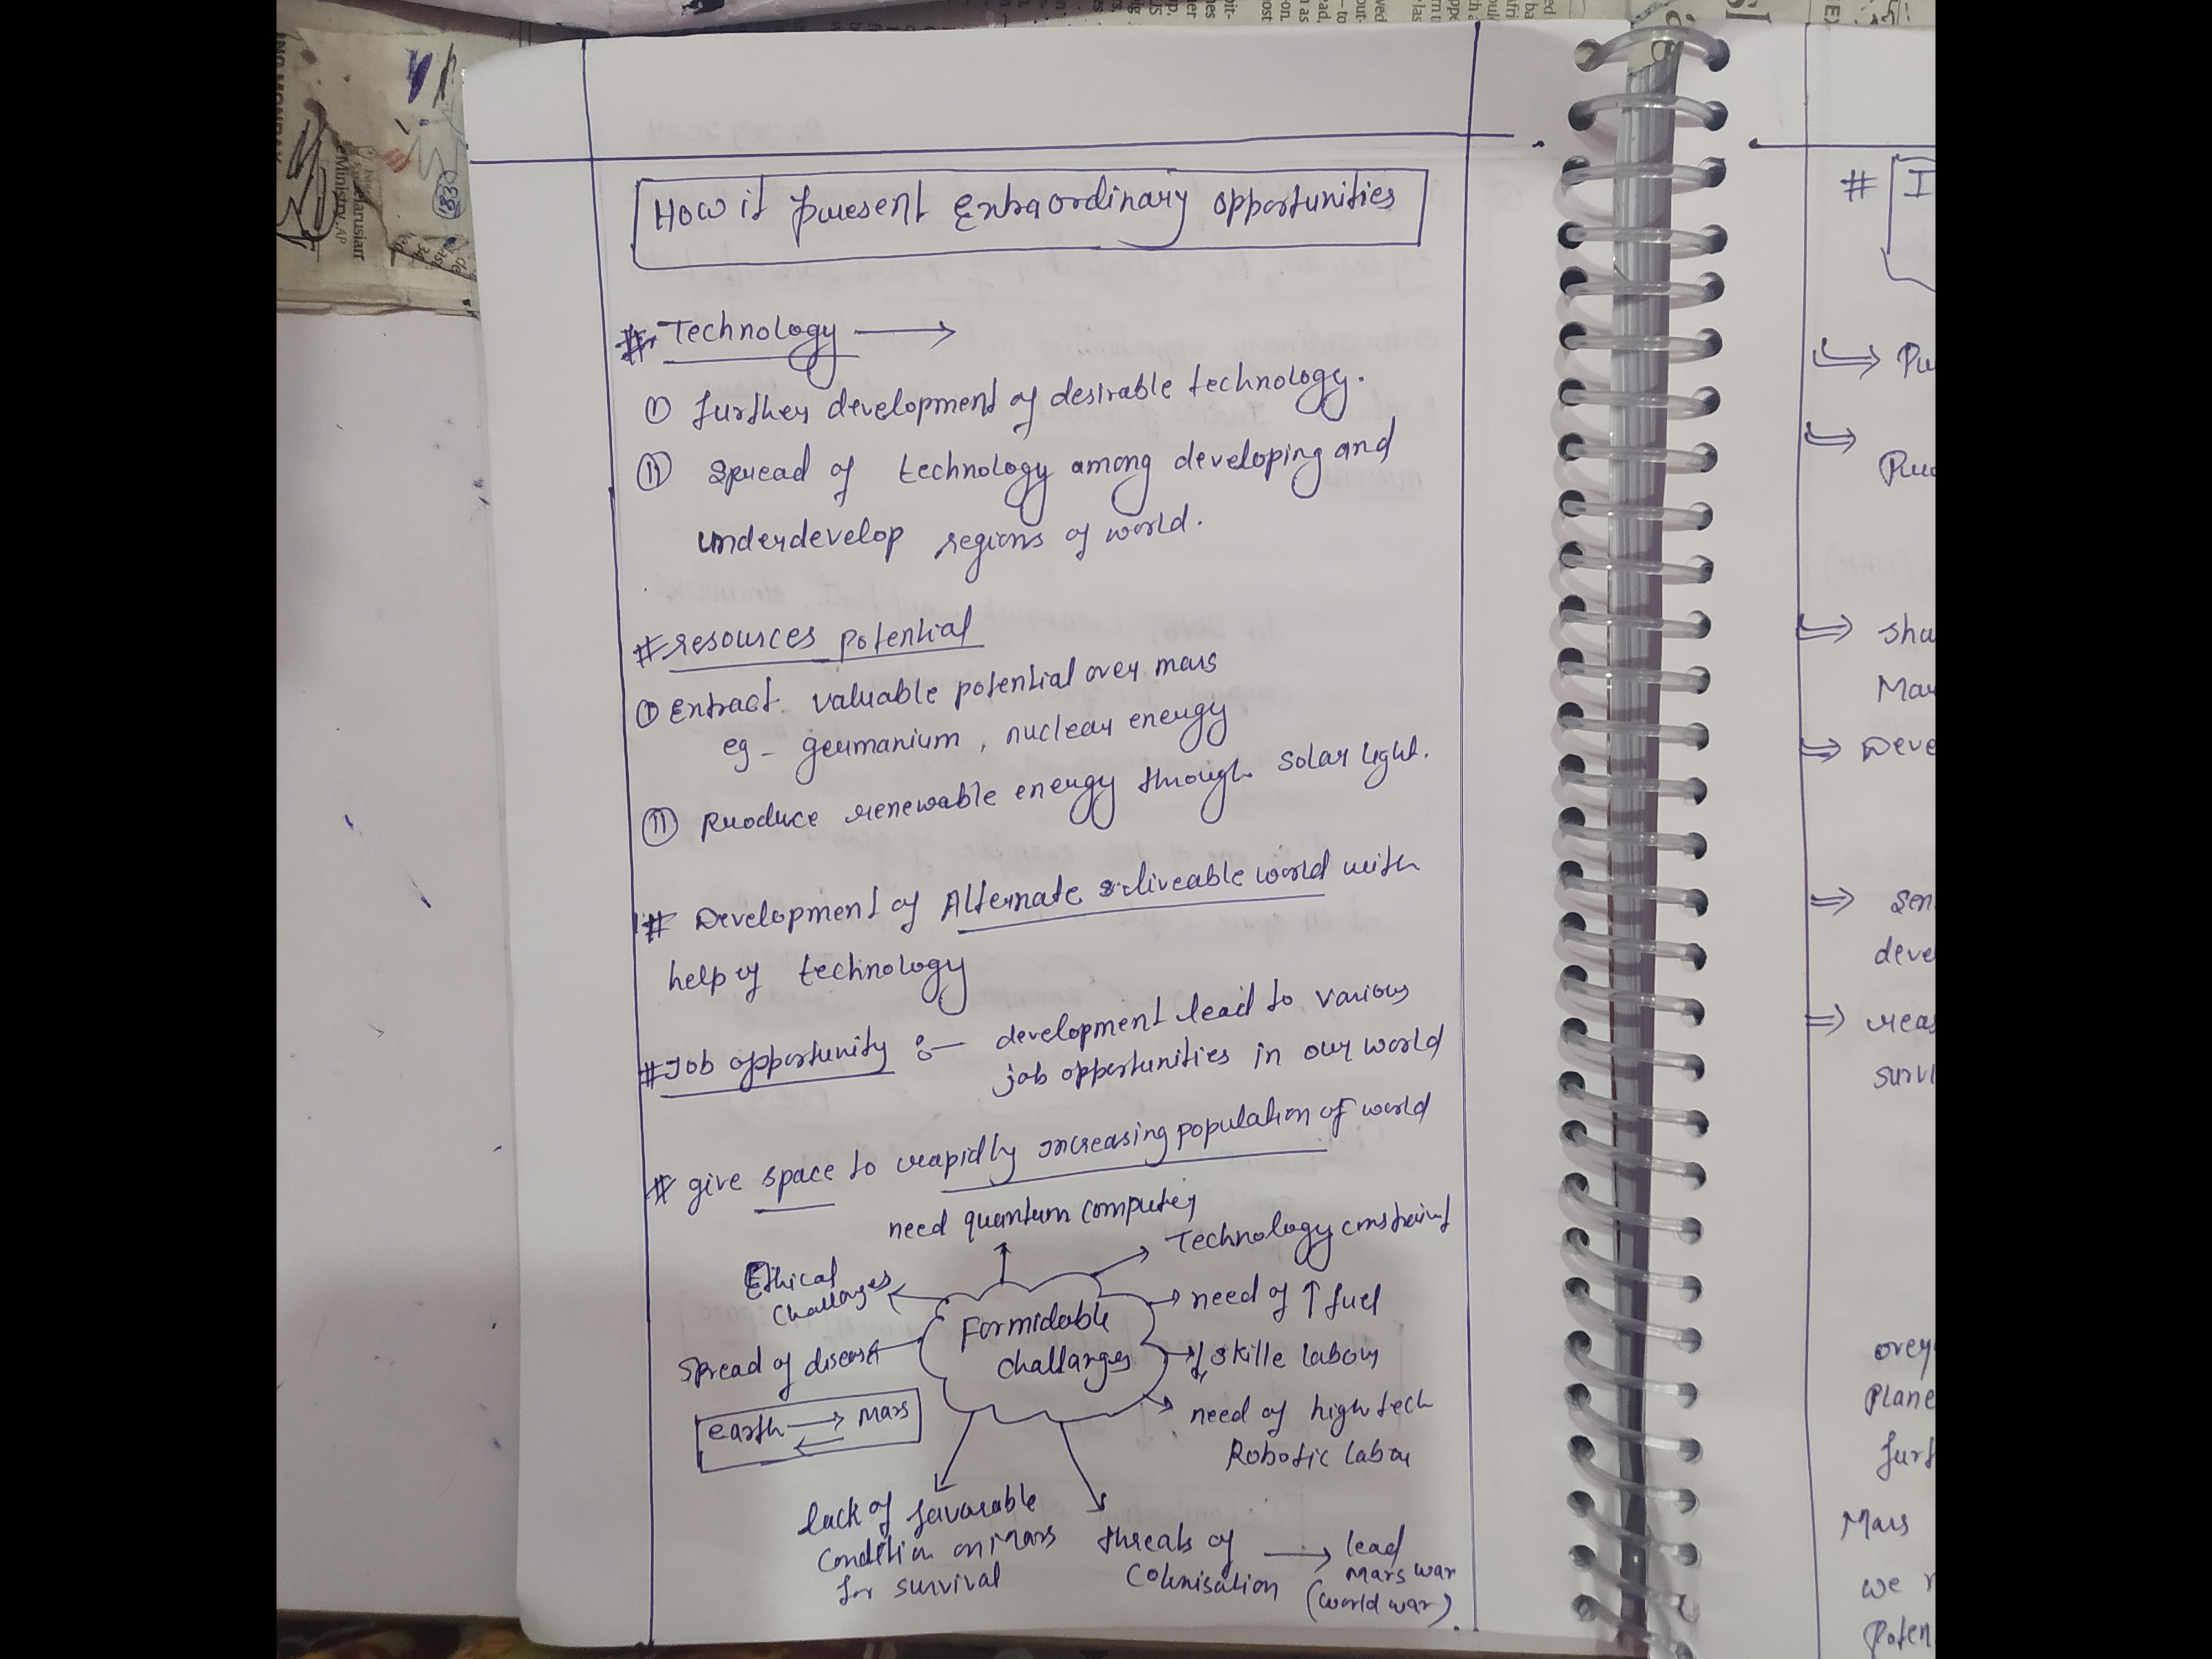 How it present Extraordinary opportunities
# Technology ⟶
① further development of desirable technology.
② Spread of technology among developing and
underdevelop regions of world.
# resources potential
① Extract valuable potential over mars
eg – germanium, nuclear energy
② Produce renewable energy through solar light.
# Development of Alternate & liveable world with
help of technology
# Job opportunity :— development lead to various
job opportunities in our world
# give space to rapidly increasing population of world
need quantum computer
Technology constraint
Ethical
Challanges
need of ↑ fuel
Formidable
challanges
Spread of disease
skille labour
earth ⟶ Mars
⟵
need of high tech
Robotic labour
lack of favorable
condition on Mars
for survival
threats of
Colonisation
⟶ lead
Mars war
(world war)
# I
⇒ Pu
⇒
⇒ Sha
Mar
⇒ Deve
⇒ Sen
deve
⇒ reas
survi
over
Plane
furt
Mars
we
Poten
Ministry,
AP
elarusian
183